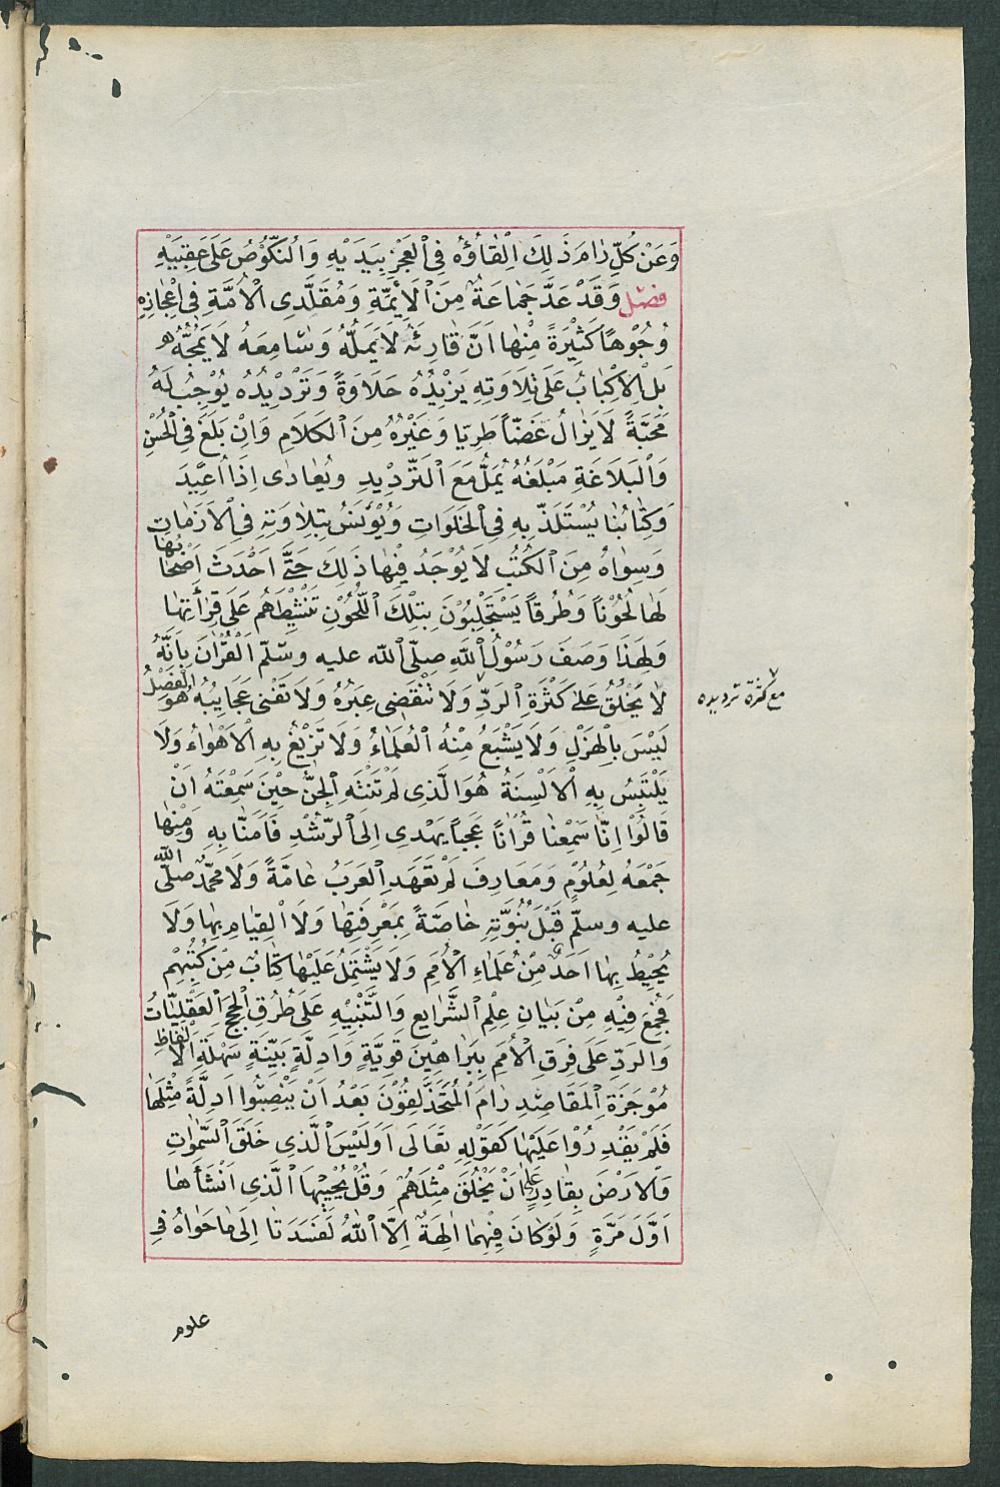 وَعَنْ كُلِّ رَامَ ذَلِكَ اِلْقَاؤُهُ فِى الْعَجْزِ بِيَدَيْهِ وَالنُّكُوْصُ عَلَى عَقِبَيْهِ
فصل وَقَدْ عَدَّ جَمَاعَةٌ مِنَ الْاَئِمَّةِ وَمُقَلِّدِى الْاُمَّةِ فِى اِعْجَازِهِ
وُجُوْهًا كَثِيْرَةً مِنْهَا اَنَّ قَارِئَهُ لَا يَمَلُّهُ وَسَامِعَهُ لَا يَمُجُّهُ
بَلِ الْاِكْبَابُ عَلَى تِلَاوَتِهِ يَزِيْدُهُ حَلَاوَةً وَتَرْدِيْدُهُ يُوْجِبُ لَهُ
مَحَبَّةً لَا يَزَالُ غَضًّا طَرِيًا وَغَيْرُهُ مِنَ الْكَلَامِ وَاِنْ بَلَغَ فِى الْحُسْنِ
وَالْبَلَاغَةِ مَبْلَغَهُ يُمَلُّ مَعَ التَّرْدِيْدِ وَيُعَادٰى اِذَا اُعِيْدَ
وَكِتَابُنَا يُسْتَلَذُّ بِهِ فِى الْخَلَوَاتِ وَيُؤْنَسُ بِتِلَاوَتِهِ فِى الْاَزَمَاتِ
وَسِوَاهُ مِنَ الْكُتُبِ لَا يُوْجَدُ فِيْهَا ذَلِكَ حَتَّى اَحْدَثَ اَصْحَابُهَا
لَهَا لُحُوْنًا وَطُرُقًا يَسْتَجْلِبُوْنَ بِتِلْكَ اللُّحُوْنِ تَنْشِيْطَهُمْ عَلَى قِرَأَتِهَا
وَلِهَذَا وَصَفَ رَسُوْلُ اللّٰهِ صلّى الله عليه وسلّم الْقُرْاٰنَ بِاَنَّهُ
لَا يَخْلُقُ عَلَى كَثْرَةِ الرَّدِّ وَلَا تَنْقَضِى عِبَرُهُ وَلَا تَفْنٰى عَجَايِبُهُ هُوَ الْفَصْلُ
مع كثرة ترديده
لَيْسَ بِالْهَزْلِ وَلَا يَشْبَعُ مِنْهُ الْعُلَمَاءُ وَلَا تَزِيْغُ بِهِ الْاَهْوَاءُ وَلَا
يَلْتَبِسُ بِهِ الْاَلْسِنَةُ هُوَ الَّذِى لَمْ تَنْتَهِ الْجِنُّ حِيْنَ سَمِعَتْهُ اَنْ
قَالُوْا اِنَّا سَمِعْنَا قُرْاٰنًا عَجَبًا يَهْدِى اِلَى الرُّشْدِ فَاٰمَنَّا بِهِ وَمِنْهَا
جَمْعَهُ لِعُلُوْمٍ وَمَعَارِفَ لَمْ تَعْهَدِ الْعَرَبُ عَامَّةً وَلَا مُحَمَّدٌ صلّى الله
عليه وسلّم قَبْلَ نُبُوَّتِهِ خَاصَّةً بِمَعْرِفَتِهَا وَلَا الْقِيَامِ بِهَا وَلَا
يُحِيْطُ بِهَا اَحَدٌ مِنْ عُلَمَاءِ الْاُمَمِ وَلَا يَشْتَمِلُ عَلَيْهَا كِتَابٌ مِنْ كُتُبِهِمْ
فَجُمِعَ فِيْهِ مِنْ بَيَانِ عِلْمِ الشَّرَايِعِ وَالتَّنْبِيْهِ عَلَى طُرُقِ الْحُجَجِ الْعَقْلِيَّاتِ
وَالرَّدِّ عَلَى فِرَقِ الْاُمَمِ بِبَرَاهِيْنَ قَوِيَّةٍ وَاَدِلَّةٍ بَيِّنَةٍ سَهْلَةِ الْاَلْفَاظِ
مُوْجَزَةِ الْمَقَاصِدِ رَامَ الْمُتَحَذْلِقُوْنَ بَعْدُ اَنْ يَنْصِبُوْا اَدِلَّةً مِثْلَهَا
فَلَمْ يَقْدِرُوْا عَلَيْهَا كَقَوْلِهِ تَعَالَى اَوَلَيْسَ الَّذِى خَلَقَ السَّمٰوَاتِ
وَالْاَرْضَ بِقَادِرٍ عَلَى اَنْ يَخْلُقَ مِثْلَهُمْ وَقُلْ يُحْيِيْهَا الَّذِى اَنْشَأَهَا
اَوَّلَ مَرَّةٍ وَلَوْ كَانَ فِيْهِمَا اٰلِهَةٌ اِلَّا اللّٰهُ لَفَسَدَتَا اِلَى مَا حَوَاهُ فِى
علوم